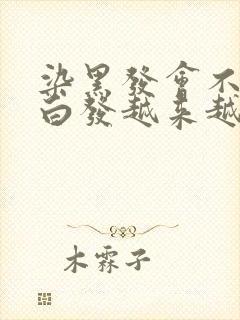 染黑發會不
白發越來越
木霖子